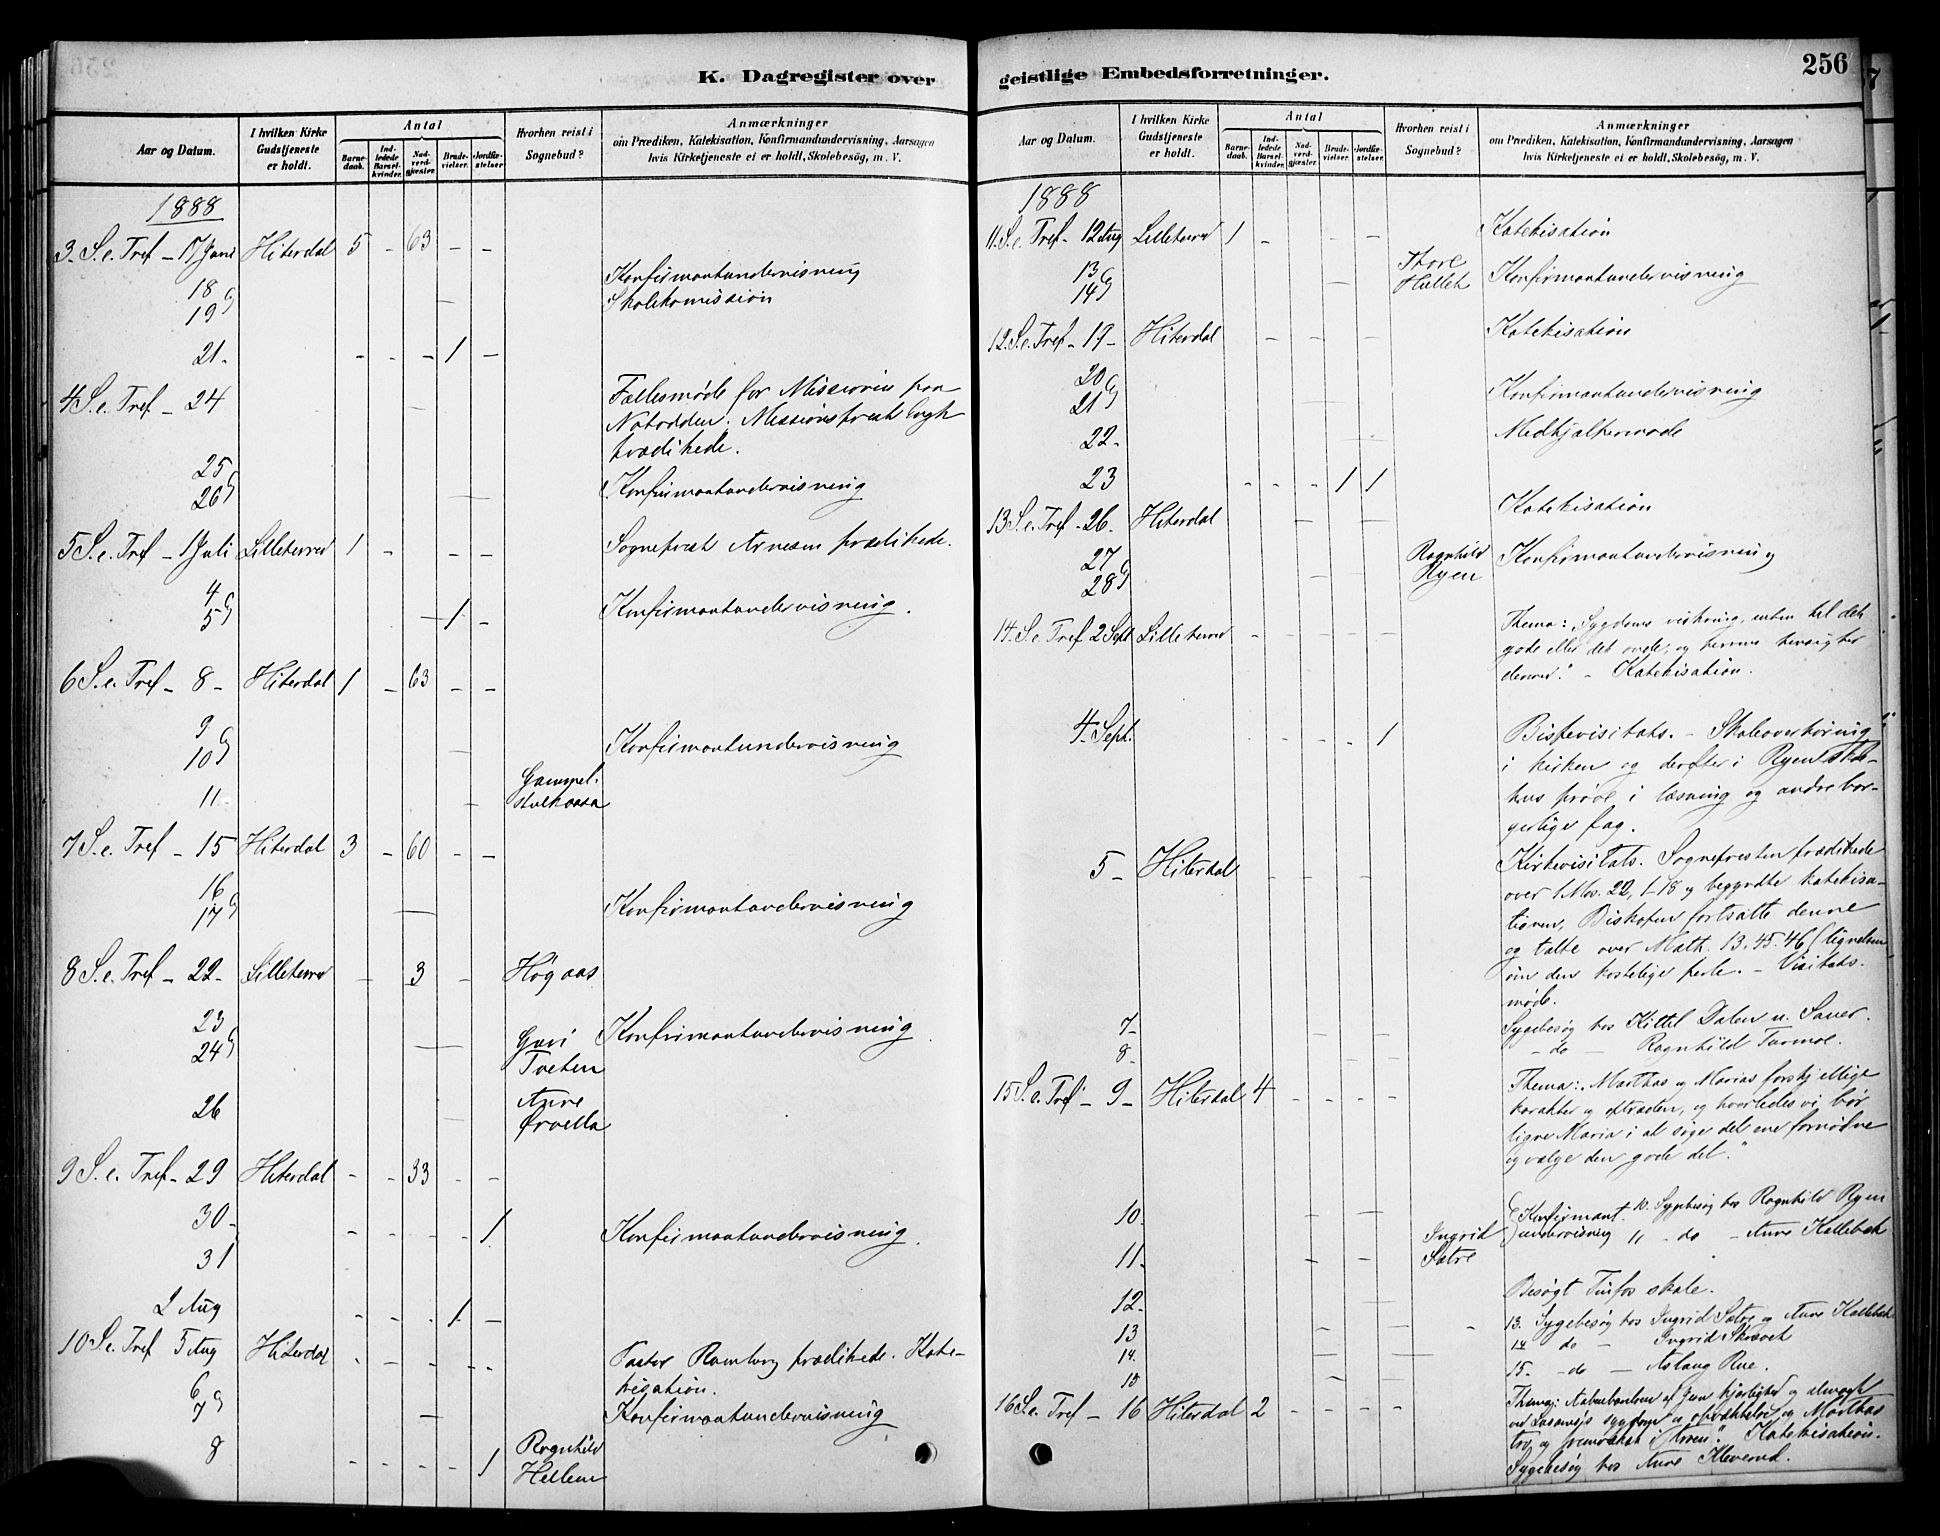 256
K. Dagregister over
geistlige Embedsforretninger.
Aar og Datum.
I hvilken Kirke Gudstjeneste er holdt.
Antal
Barnedaab.
Indledede Barselkvinder.
Nadverdgjæster.
Brudevielser.
Jordfæstelser.
Hvorhen reist i Sognebud?
Anmærkninger
om Prædiken, Katekisation, Konfirmandundervisning, Aarsagen
hvis Kirketjeneste ei er holdt, Skolebesög, m. V.
1888
3. S. e. Tref – 17 Juni Hiterdal 5 – 63 – –
18 Konfirmantundervisning
19 Skolekomission
21. – – – 1 –
4 S. e. Tref – 24 Fællesmøde for Missionen paa
Notodden. Missionsprest
prædikede.
25
26 Konfirmantundervisning
5 S. e. Tref – 1 Juli Lilleherred 1 – – – Sogneprest Arnesen prædikede.
4
5 1 – Konfirmantundervisning.
6 S. e. Tref – 8 – Hiterdal 1 – 63 – –
9
10 Konfirmantundervisning
11 –
7 S. e. Tref – 15 Hiterdal 3 – 60 – –
16
17 Konfirmantundervisning
8 S. e. Tref – 22 – Lilleherred – 3 – Høgaas
23 Guri Konfirmantundervisning.
24 Tveten
26 Anne
Ørvella
9 S. e. Tref – 29 Hiterdal – – 33 – –
30 – – – – – 1 Konfirmantundervisning.
31
2 Aug – – – 1 –
10 S. e. Tref 5 Aug Hiterdal – – – – – Pastor Ramberg prædikede. Kate-
kisation.
6
7 Konfirmantundervisning
8 – – – – 1 Ragnhild
Hellem
Aar og Datum.
I hvilken Kirke Gudstjeneste er holdt.
Antal
Barnedaab.
Indledede Barselkvinder.
Nadverdgjæster.
Brudevielser.
Jordfæstelser.
Hvorhen reist i Sognebud?
Anmærkninger
om Prædiken, Katekisation, Konfirmandundervisning, Aarsagen
hvis Kirketjeneste ei er holdt, Skolebesög, m. V.
1888
11. S. e. Tref – 12 Aug Lilleherred 1 – – – – Katekisation
13 Tore Konfirmantundervisning
14
12. S. e. Tref – 19 – Hiterdal – – – – Katekisation
20
21 Konfirmantundervisning
22 – Medhjælpermøde
23 – – – 1 1
13 S. e. Tref – 26. Hiterdal – – Katekisation
27 Ragnhild Konfirmantundervisning
28 Ryen
14. S. e. Tref 2 Sept Lilleherred – – – – – Thema: „Sygdoms virkning, enten til det
gode eller det onde, og herrens hensigter
dermed." – Katekisation.
4. Sept. – – – – 1 Bispevisitats. – Skoleoverhøring
i kirken og derefter i Ryen skole-
hus prøve i læsning og andre bor-
gerlige fag.
5 – Hiterdal – – – – – Kirkevisitats. Sognepresten prædikede
over 1. Mos. 22, 1–18 og begyndte katekisa-
tionen, Biskopen fortsatte denne
og talte over Math. 13. 45. 46 (lignelsen
om den kostelige perle. – Visitats-
møde.
7 – Sygebesøg hos Kittil Dalen u. Sauer.
8 – – do – Ragnhild
15 S. e. Tref – 9 – Hiterdal 4 – – – – Thema: „Marthas og Marias forskjellige
karakter og optræden, og hvorledes vi bør
ligne Maria i at søge det ene fornødne
og vælge den gode del."
10. Konfirmant- 10. Sygebesøg hos Ragnhild Ryen
11. Ingrid undervisning 11 – do – Anne Kallebæk
Sætre
12. Besøgt Tinfos skole.
13 13. Sygebesøg hos Ingrid Sætre og Anne Kallebæk
14. 14 do – Ingrid
15 15. – do – Aslaug Rue.
16 S. e. Tref – 16 Hiterdal 2 – – – – Thema: Aabenbarelsen af Jesu kjærlighed og almagt
ved Lasarus's sygdom og opvækkelse og Marthas
tro og fremvækst i troen". Katekisation.
Sygebesøg hos Anne